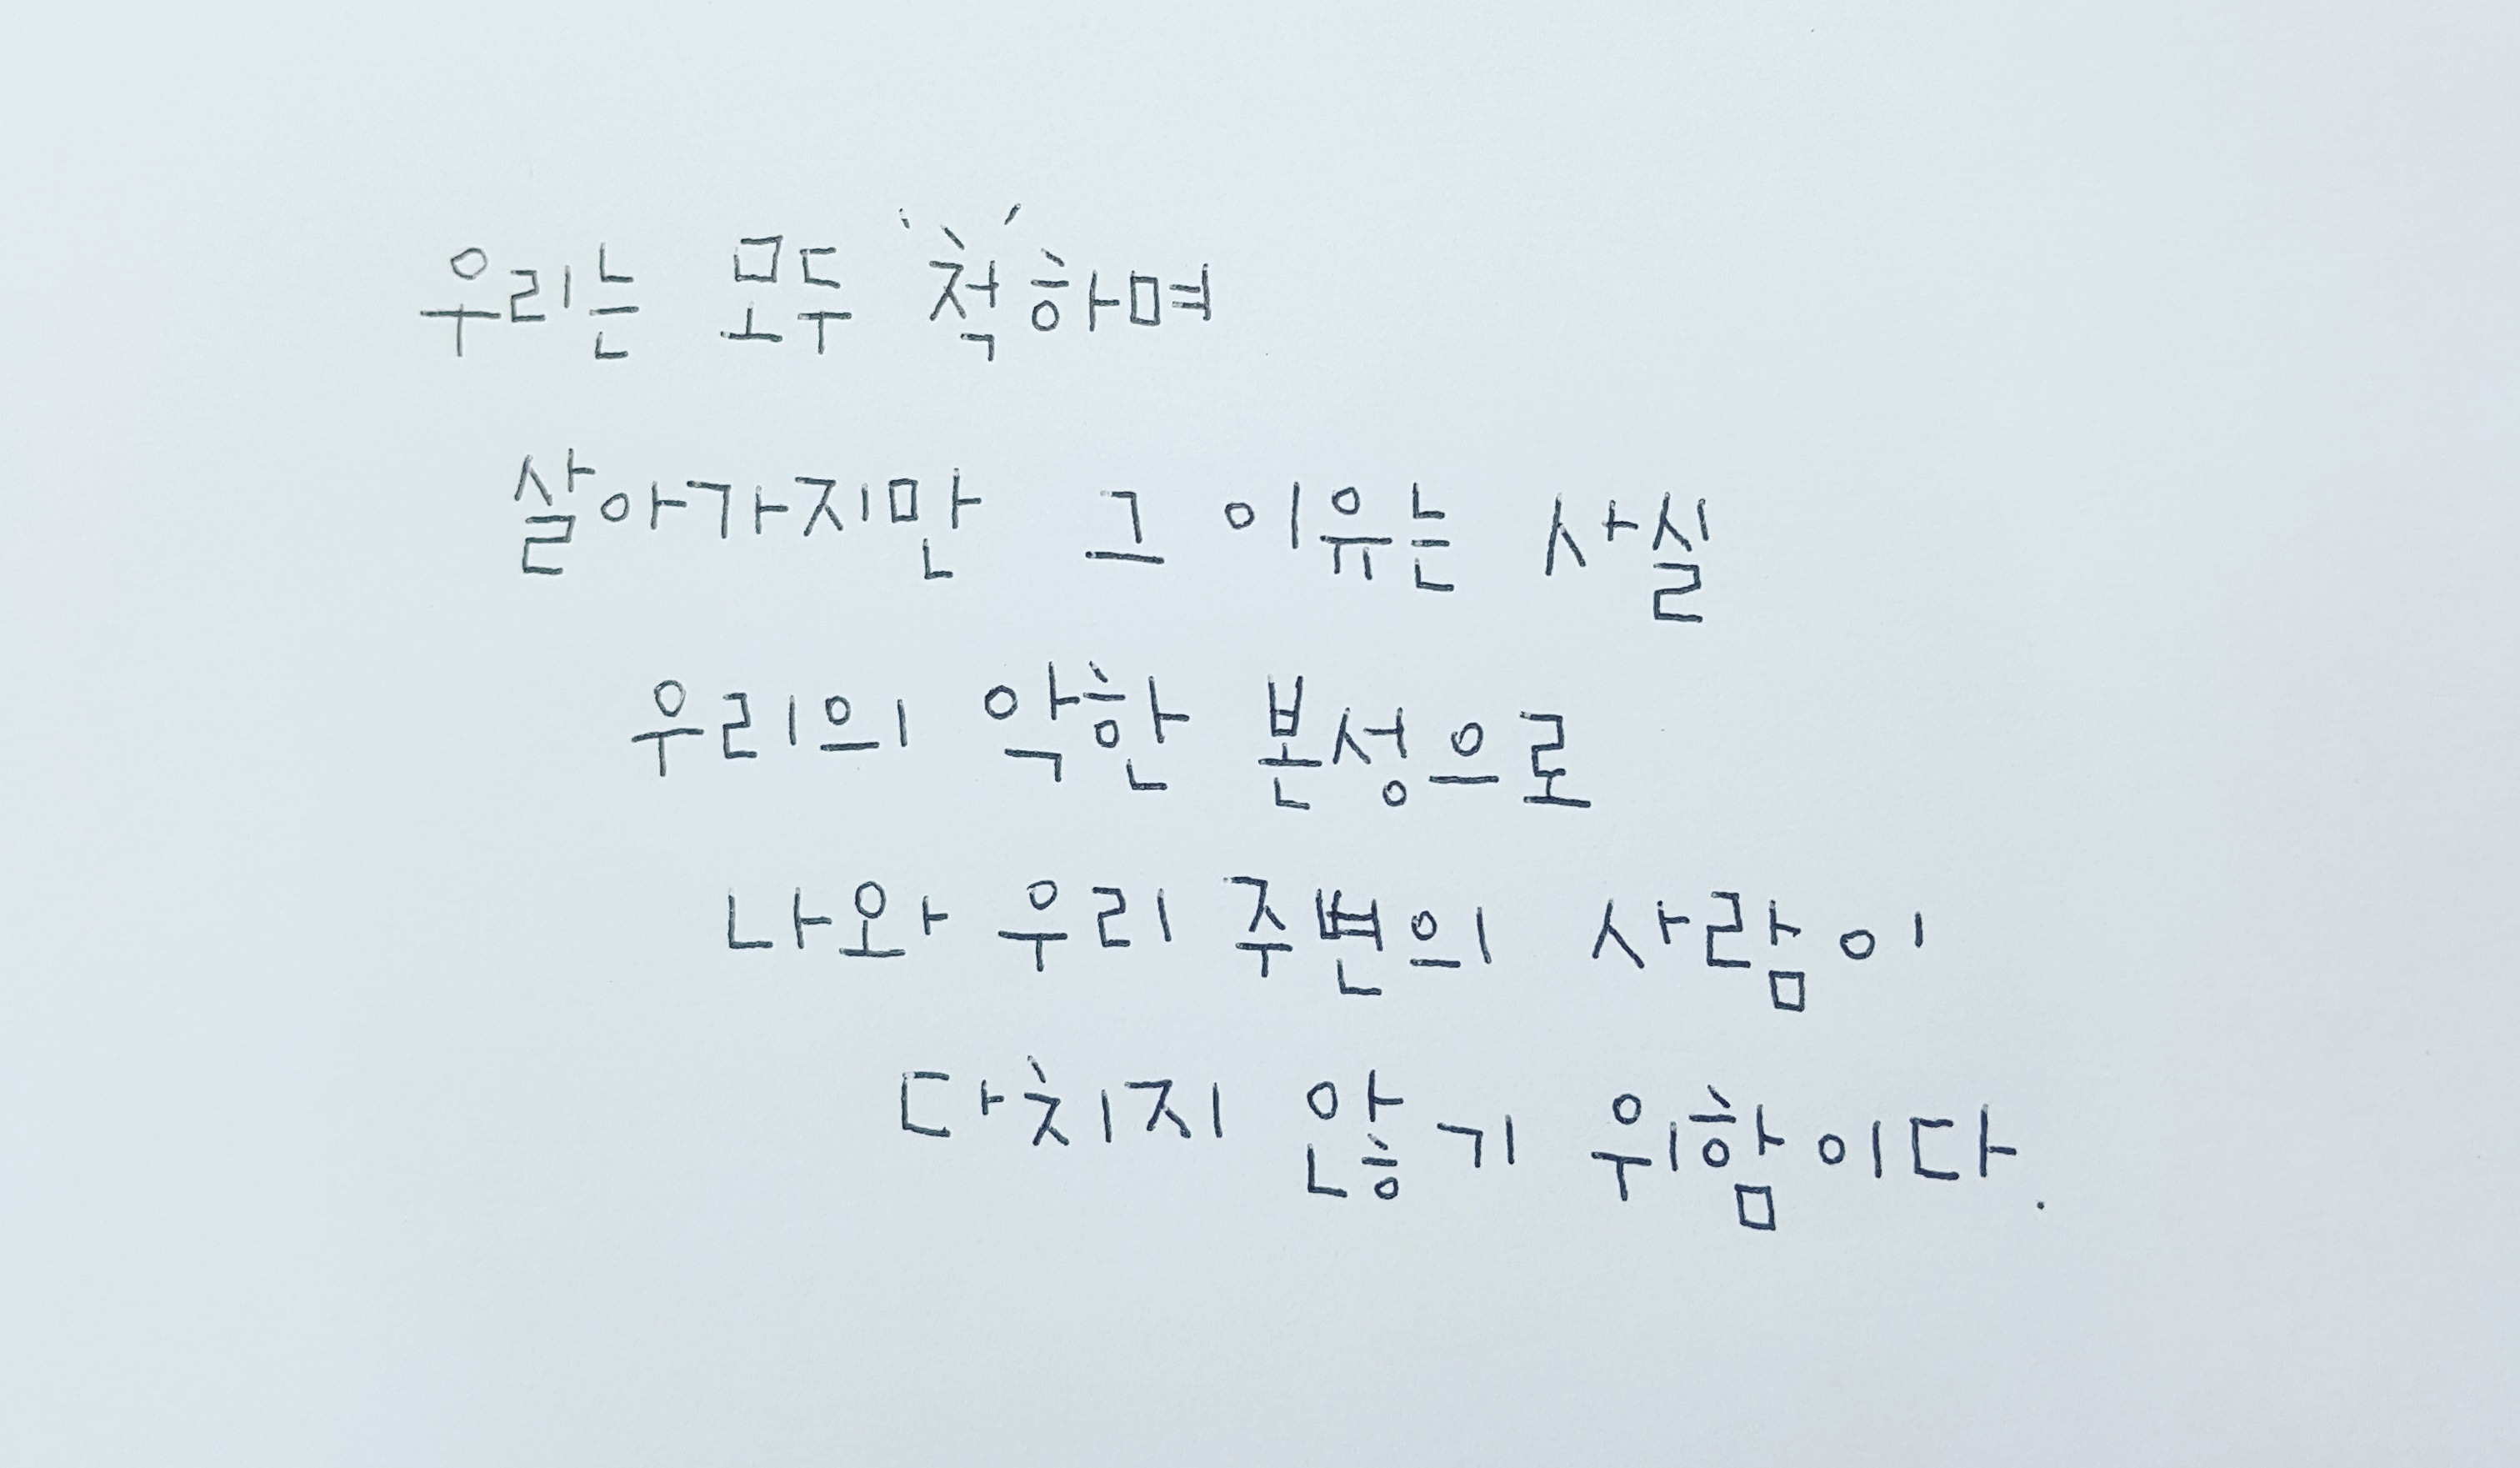 우리는 모두 '척'하며
살아가지만 그 이유는 사실
우리의 악한 본성으로
나와 우리 주변의 사람이
다치지 않기 위함이다.